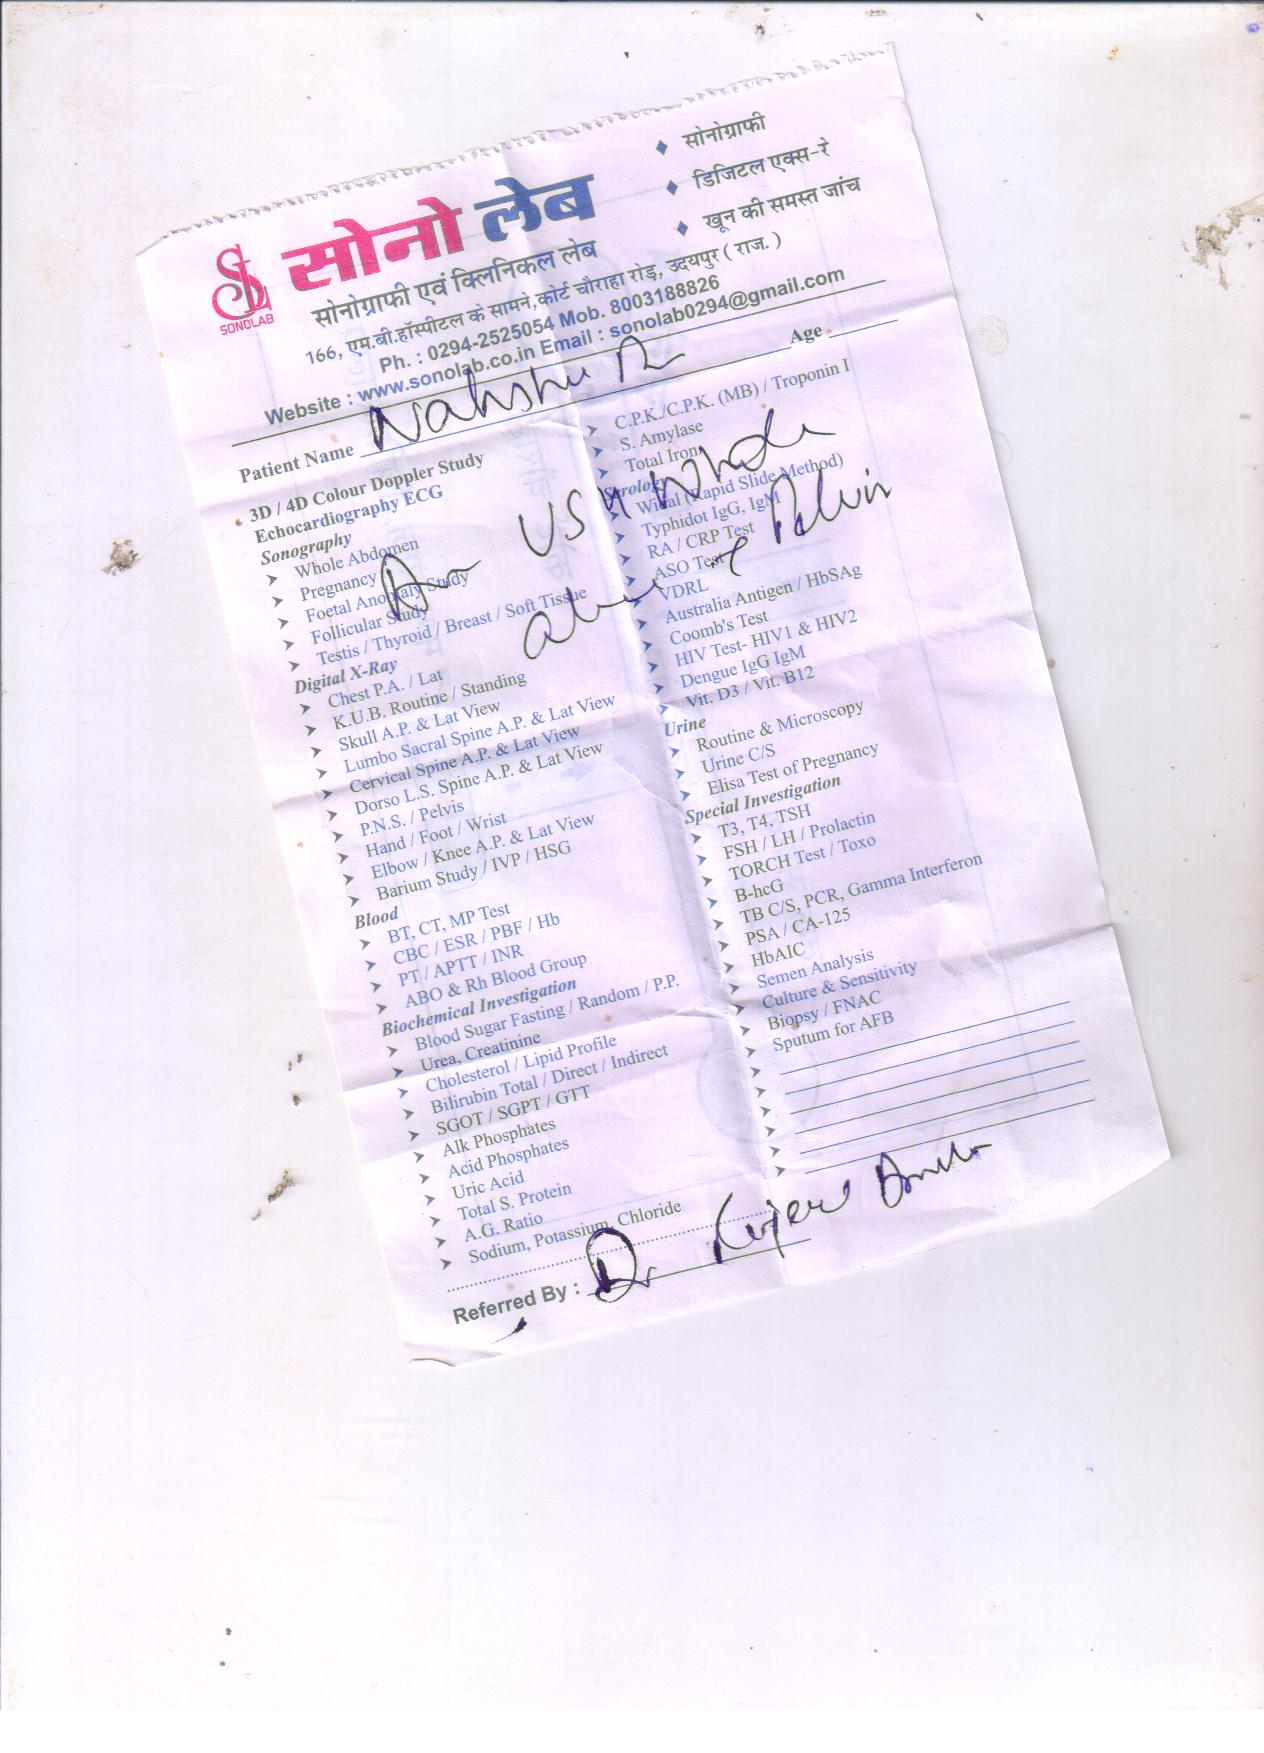 सोनो लेब
SONOLAB
सोनोग्राफी एवं क्लिनिकल लेब
◆ सोनोग्राफी
◆ डिजिटल एक्स-रे
◆ खून की समस्त जांच
166, एम.बी.हॉस्पीटल के सामने,कोर्ट चौराहा रोड़, उदयपुर ( राज. )
Ph. : 0294-2525054 Mob. 8003188826
Website : www.sonolab.co.in Email : sonolab0294@gmail.com
Patient Name
Age
3D / 4D Colour Doppler Study
Echocardiography ECG
Sonography
➤ Whole Abdomen
➤ Pregnancy
➤ Foetal Anomaly Study
➤ Follicular Study
➤ Testis / Thyroid / Breast / Soft Tissue
Digital X-Ray
➤ Chest P.A. / Lat
➤ K.U.B. Routine / Standing
➤ Skull A.P. & Lat View
➤ Lumbo Sacral Spine A.P. & Lat View
➤ Cervical Spine A.P. & Lat View
➤ Dorso L.S. Spine A.P. & Lat View
➤ P.N.S. / Pelvis
➤ Hand / Foot / Wrist
➤ Elbow / Knee A.P. & Lat View
➤ Barium Study / IVP / HSG
Blood
➤ BT, CT, MP Test
➤ CBC / ESR / PBF / Hb
➤ PT / APTT / INR
➤ ABO & Rh Blood Group
Biochemical Investigation
➤ Blood Sugar Fasting / Random / P.P.
➤ Urea, Creatinine
➤ Cholesterol / Lipid Profile
➤ Bilirubin Total / Direct / Indirect
➤ SGOT / SGPT / GTT
➤ Alk Phosphates
➤ Acid Phosphates
➤ Uric Acid
➤ Total S. Protein
➤ A.G. Ratio
➤ Sodium, Potassium, Chloride
➤ C.P.K./C.P.K. (MB) / Troponin I
➤ S. Amylase
➤ Total Iron
Serology
➤ Widal (Rapid Slide Method)
➤ Typhidot IgG, IgM
➤ RA / CRP Test
➤ ASO Test
➤ VDRL
➤ Australia Antigen / HbSAg
➤ Coomb's Test
➤ HIV Test- HIV1 & HIV2
➤ Dengue IgG IgM
➤ Vit. D3 / Vit. B12
Urine
➤ Routine & Microscopy
➤ Urine C/S
➤ Elisa Test of Pregnancy
Special Investigation
➤ T3, T4, TSH
➤ FSH / LH / Prolactin
➤ TORCH Test / Toxo
➤ B-hcG
➤ TB C/S, PCR, Gamma Interferon
➤ PSA / CA-125
➤ HbAIC
➤ Semen Analysis
➤ Culture & Sensitivity
➤ Biopsy / FNAC
➤ Sputum for AFB
USG Whole
Pelvis
Referred By : Dr